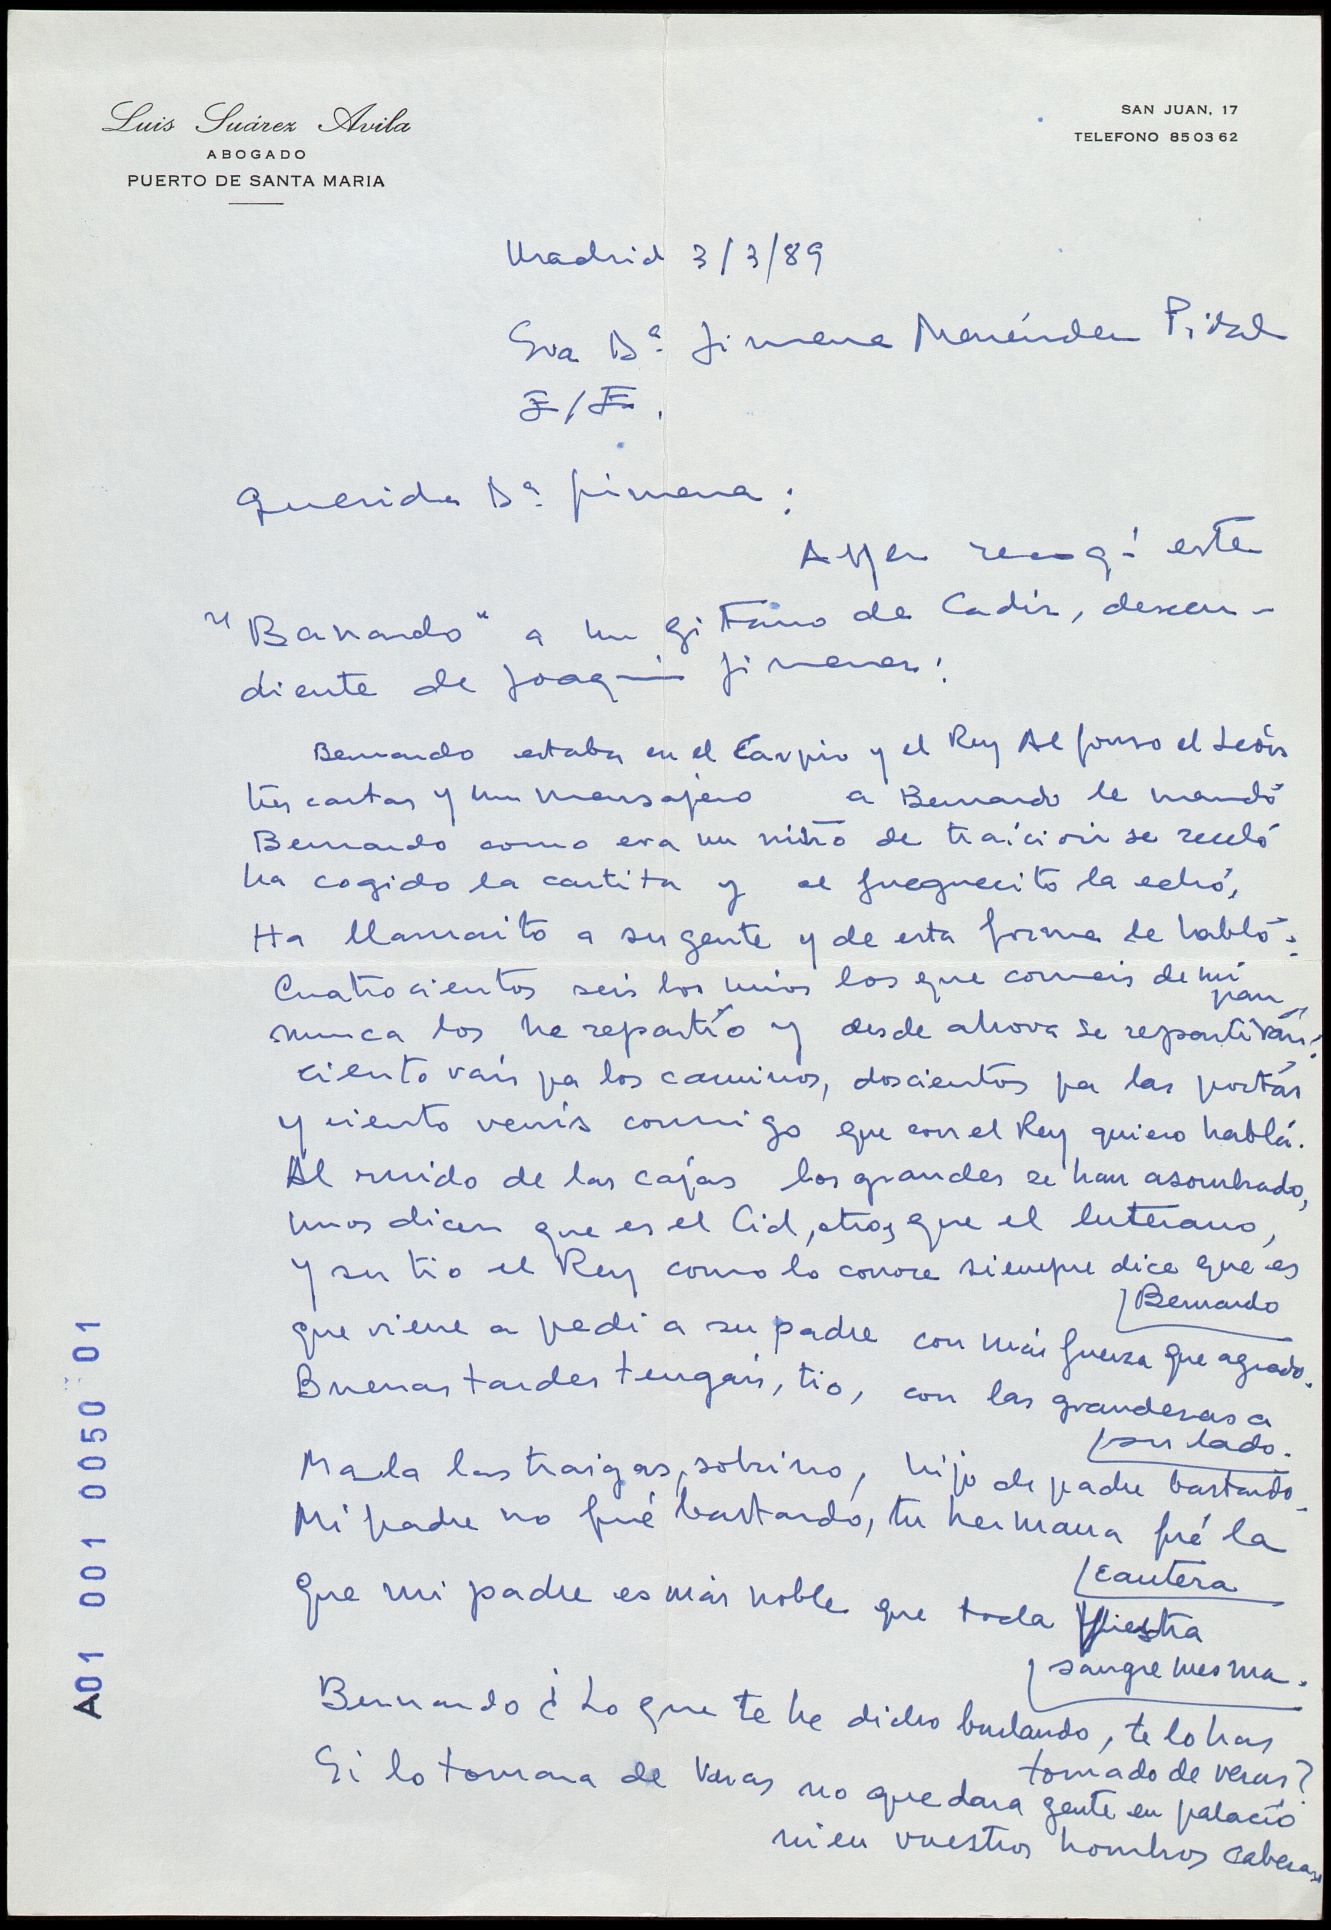 Luis Suárez Avila
ABOGADO
PUERTO DE SANTA MARIA
SAN JUAN, 17
TELEFONO 85 03 62
Madrid 3/3/89
Sra Dª Jimena Menéndez Pidal
Querida Dª Jimena:
Ayer recogí este
"Bernardo" a un gitano de Cadiz, descen-
diente de Joaquín Jimenez:
Bernardo estaba en el Carpio y el Rey Alfonso el León
tres cartas y un mensajero a Bernardo le mandó
Bernardo como era un niño de traición se receló
ha cogido la cartita y al fueguecito la echó,
Ha llamaito a su gente y de esta forma le habló:
Cuatrocientos seis los mios los que comeis de mi
pan
nunca los he repartío y desde ahora se repartirán:
ciento vais pa los caminos, doscientos pa las portás
y ciento venís conmigo que con el Rey quiero hablá.
Al ruido de las cajas los grandes se han asombrado,
unos dicen que es el Cid, otros que el luterano,
y su tio el Rey como lo conoce siempre dice que es
Bernardo
que viene a pedi a su padre con más fuerza que agrado.
Buenas tardes tengais, tio, con las grandezas a
su lado.
Mala las traigas, sobrino, hijo de padre bastardo.
Mi padre no fué bastardo, tu hermana fué la
cautera
que mi padre es más noble que toda vuestra
sangre mesma.
Bernardo ¿Lo que te he dicho burlando, te lo has
tomado de veras?
Si lo tomara de veras no quedara gente en palacio
ni en vuestros hombros cabezas
A01 001 0050 01